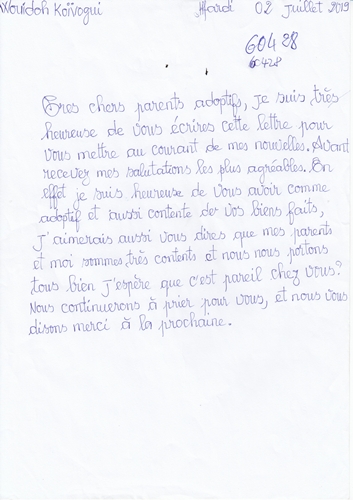 Wouidoh Koïvogui
Mardi 02 Juillet 2019
60428
60428
Tres chers parents adoptifs, je suis très
heureuse de vous écrires cette lettre pour
vous mettre au courant de mes nouvelles. Avant
recevez mes salutations les plus agréables. En
effet je suis heureuse de vous avoir comme
adoptif et aussi contente der vos biens faits,
J'aimerais aussi vous dires que mes parents
et moi sommes très contents et nous nous portons
tous bien j'espère que c'est pareil chez vous?
Nous continuerons à prier pour vous, et nous vous
disons merci à la prochaine.